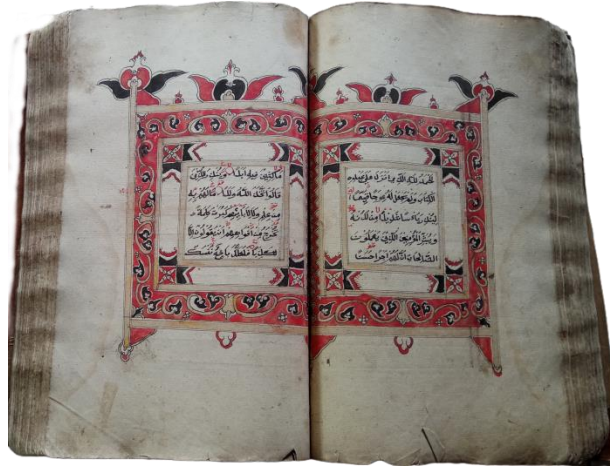 الحمد لله الذي انزل على عبده
الكتاب ولم يجعل له عوجا قيما
لينذر بأسا شديدا من لدنه
ويبشر المؤمنين الذين يعملون
الصالحات ان لهم اجرا حسنا
ماكثين فيه ابدا وينذر الذين
قالوا اتخذ الله ولدا ما لهم به
من علم ولا لابائهم كبرت كلمة
تخرج من افواههم ان يقولون الا
كذبا فلعلك باخع نفسك